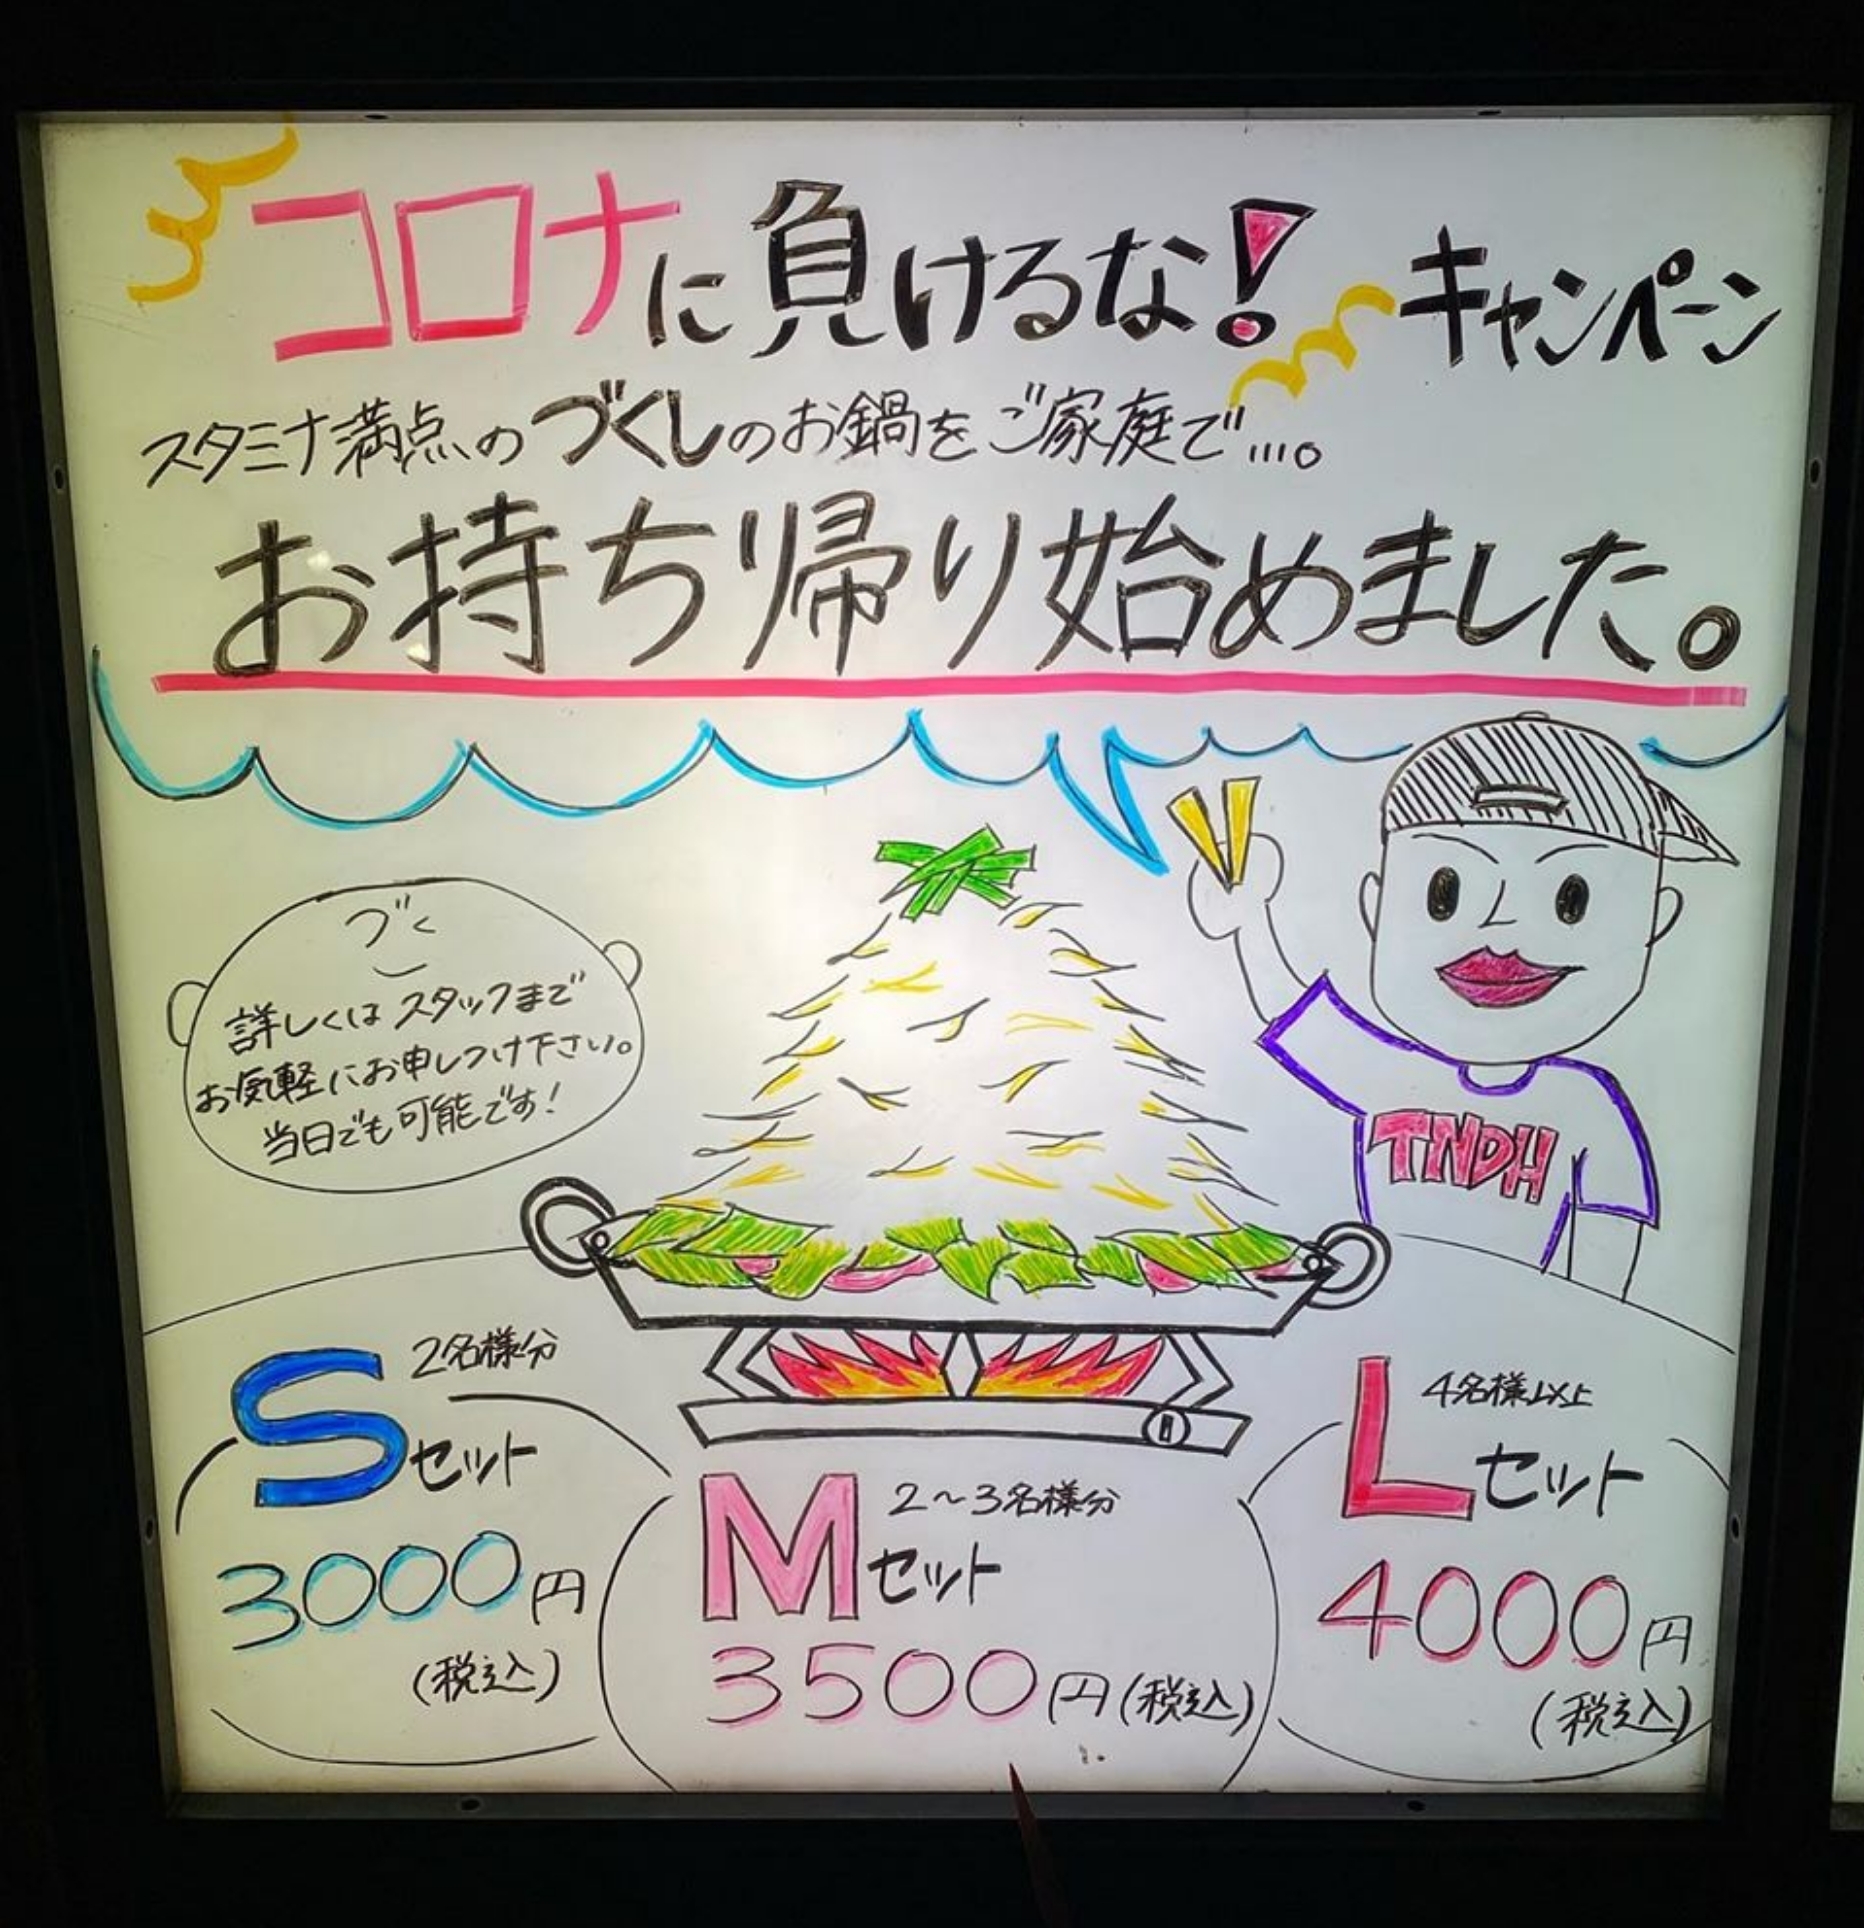 コロナに負けるな! キャンペーン
スタミナ満点のづくしのお鍋をご家庭で....。
お持ち帰り始めました。
づく
詳しくはスタッフまで
お気軽にお申しつけ下さい。
当日でも可能です!
TNDH
2名様分
Sセット
3000円
(税込)
2〜3名様分
Mセット
3500円(税込)
4名様以上
Lセット
4000円
(税込)